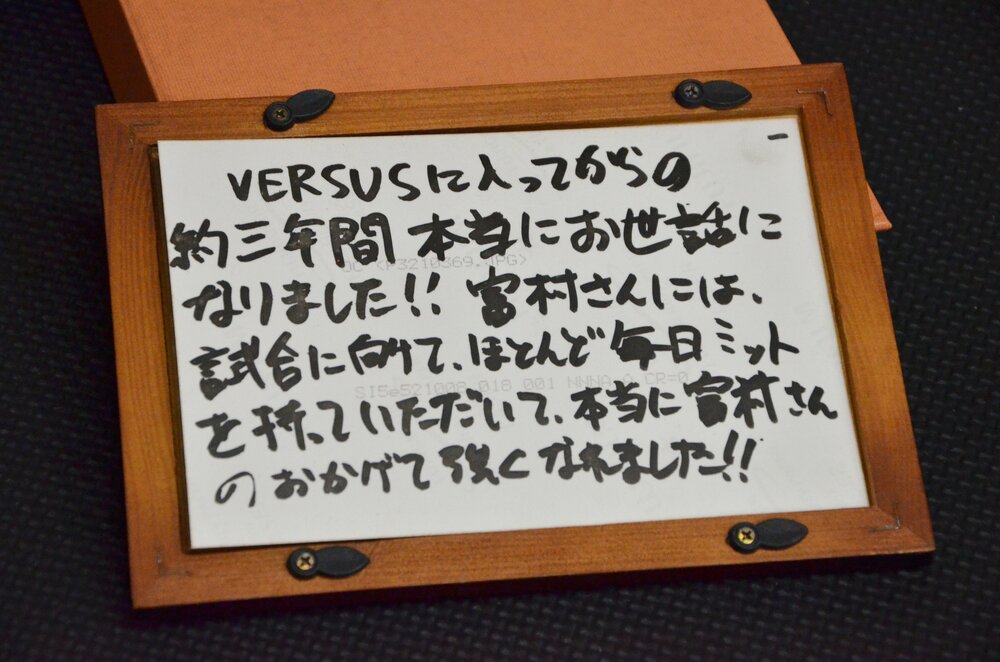 VERSUSに入ってからの
約三年間 本当にお世話に
なりました!! 富村さんには、
試合に向けて、ほとんど毎日ミット
を持っていただいて、本当に富村さん
のおかげで強くなれました!!